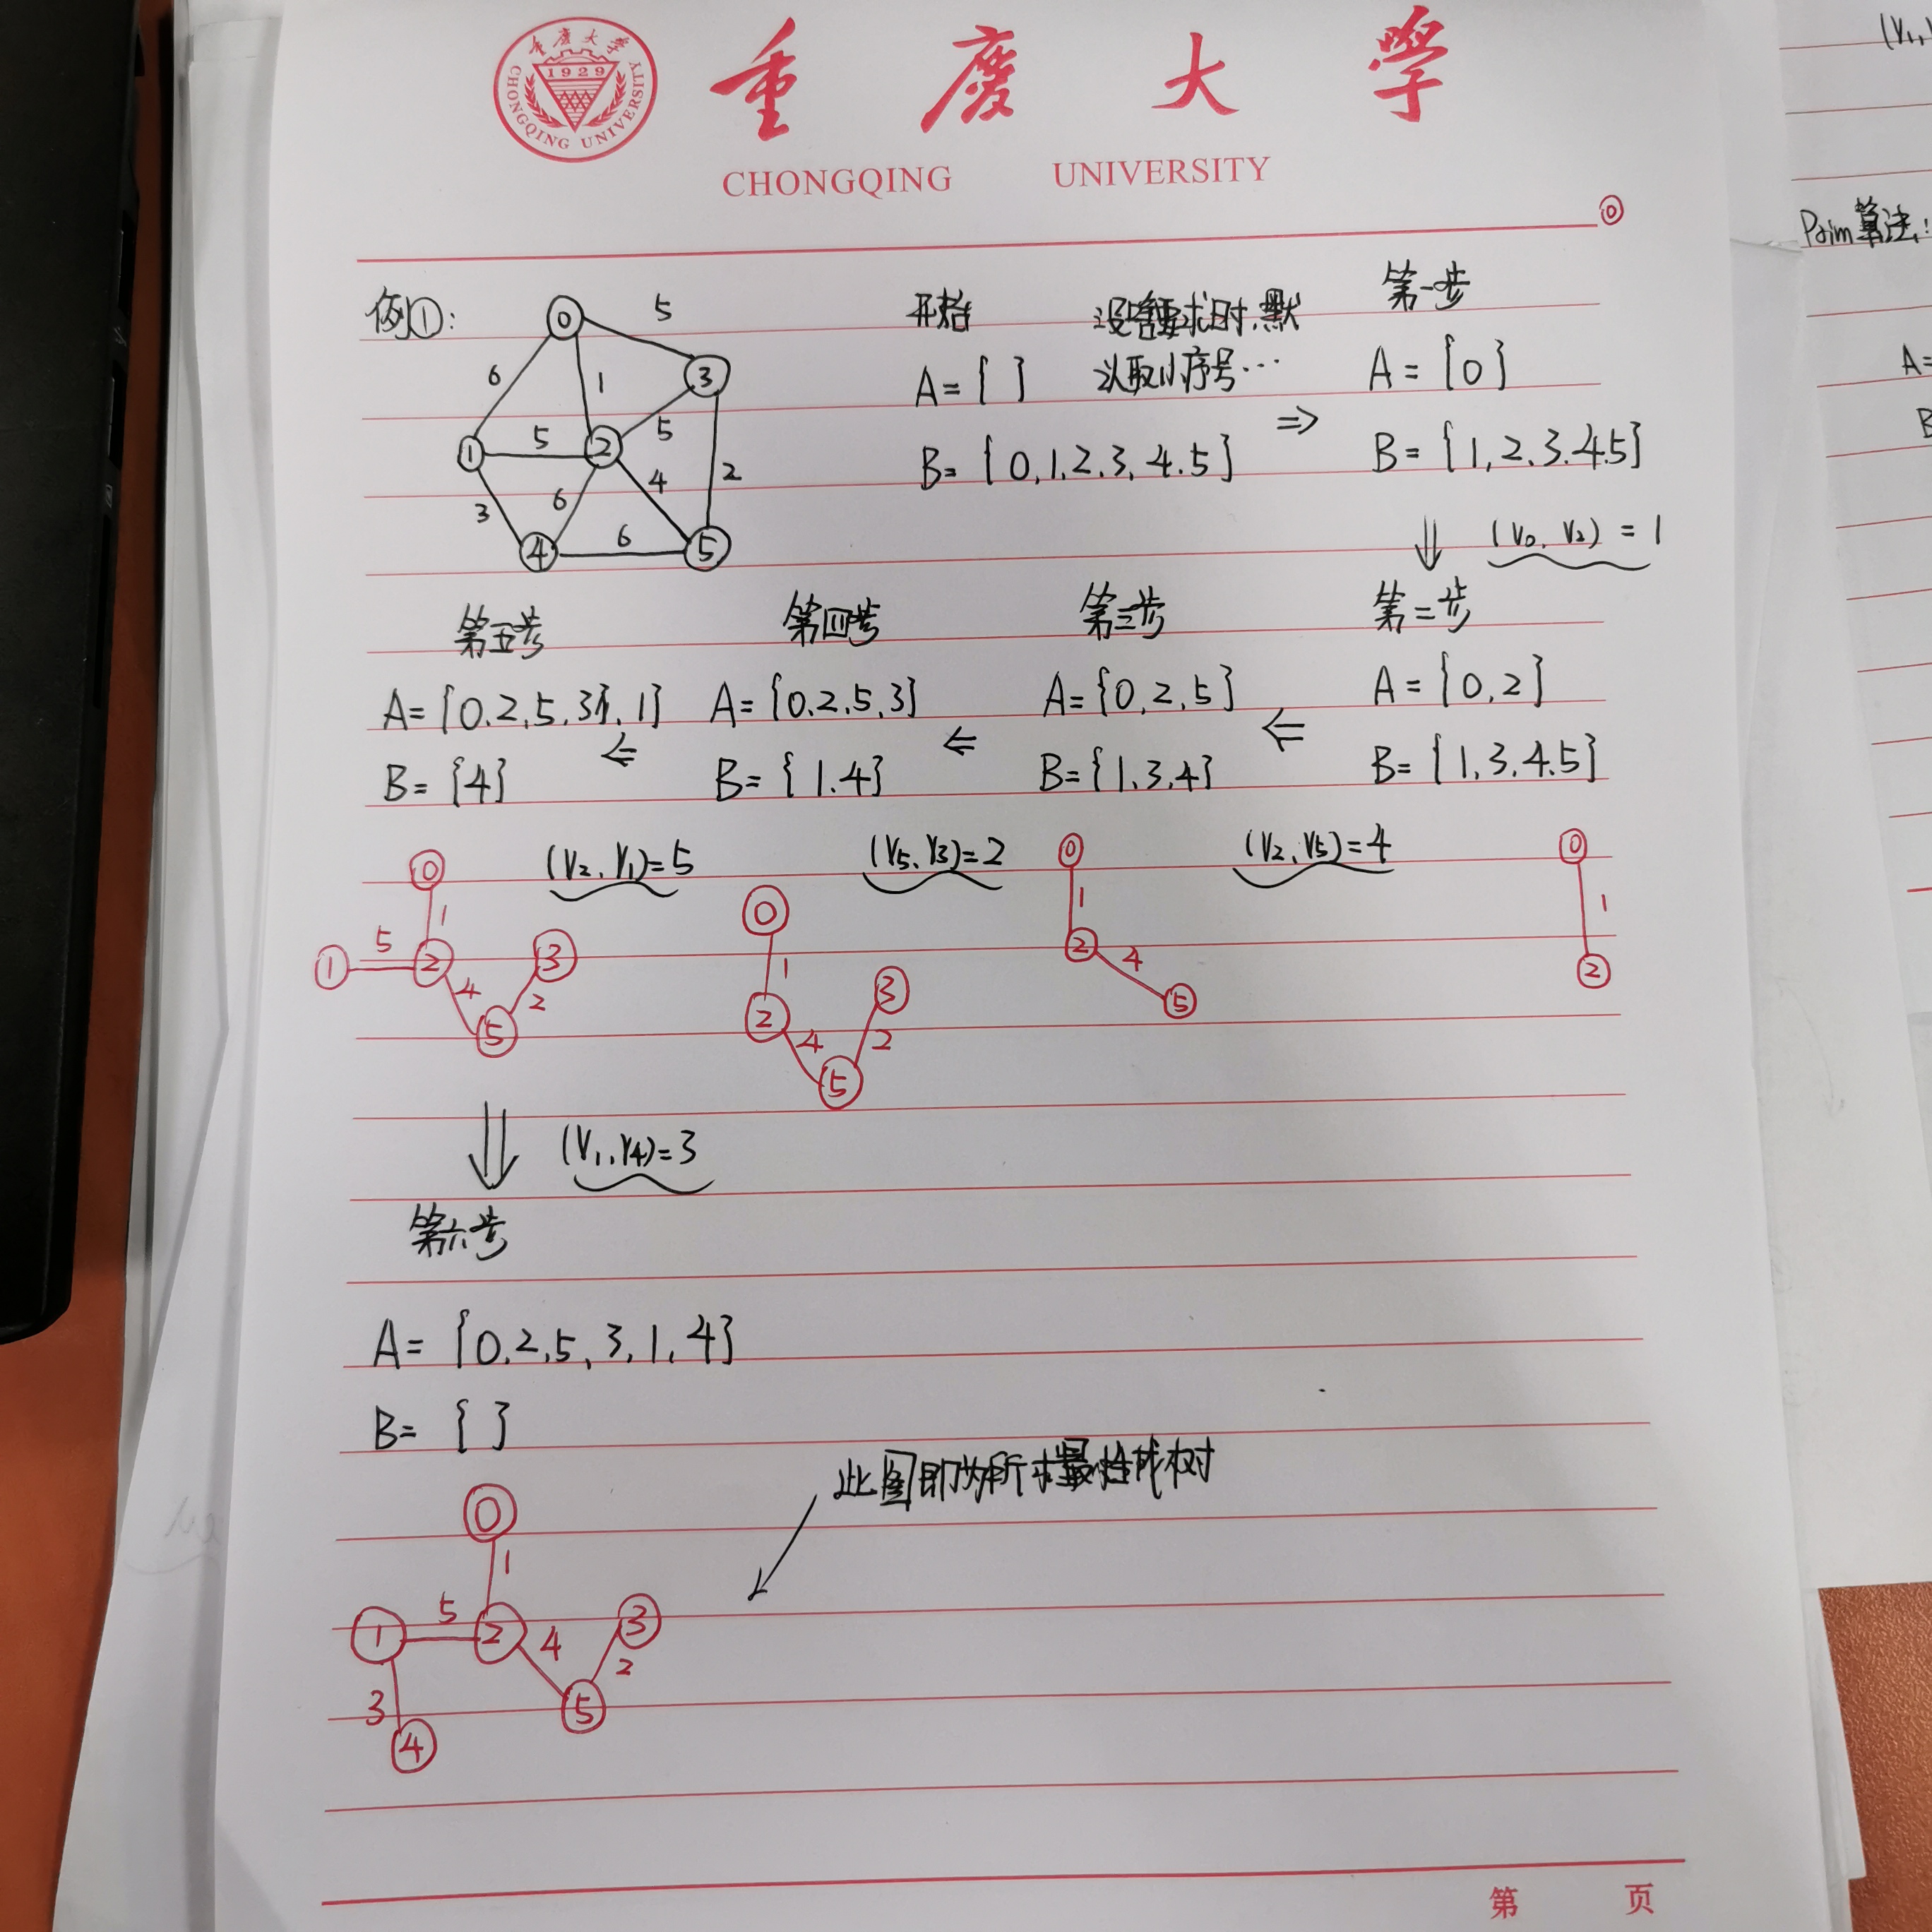 重庆大学
1929
CHONGQING UNIVERSITY
重庆大学
CHONGQING UNIVERSITY
0
(V₁,
Prim算法:
A=
B
例①:
0
5
6
1
3
1
5
2
5
3
6
4
2
4
6
5
开始
没啥要求时,默
认取小序号…
A={ }
B={0,1,2,3,4,5}
⇒
第一步
A={0}
B={1,2,3,4,5}
⇓ (V₀,V₂)=1
第二步
A={0,2}
B={1,3,4,5}
⇐
(V₂,V₅)=4
0
1
2
第三步
A={0,2,5}
B={1,3,4}
⇐
(V₅,V₃)=2
0
1
2
4
5
第四步
A={0,2,5,3}
B={1,4}
⇐
(V₂,V₁)=5
0
1
2
3
4
2
5
第五步
A={0,2,5,3,1}
B={4}
0
1
1
5
2
3
4
2
5
⇓ (V₁,V₄)=3
第六步
A={0,2,5,3,1,4}
B={ }
此图即为所求最小生成树
0
1
1
5
2
3
4
2
3
5
4
第 页